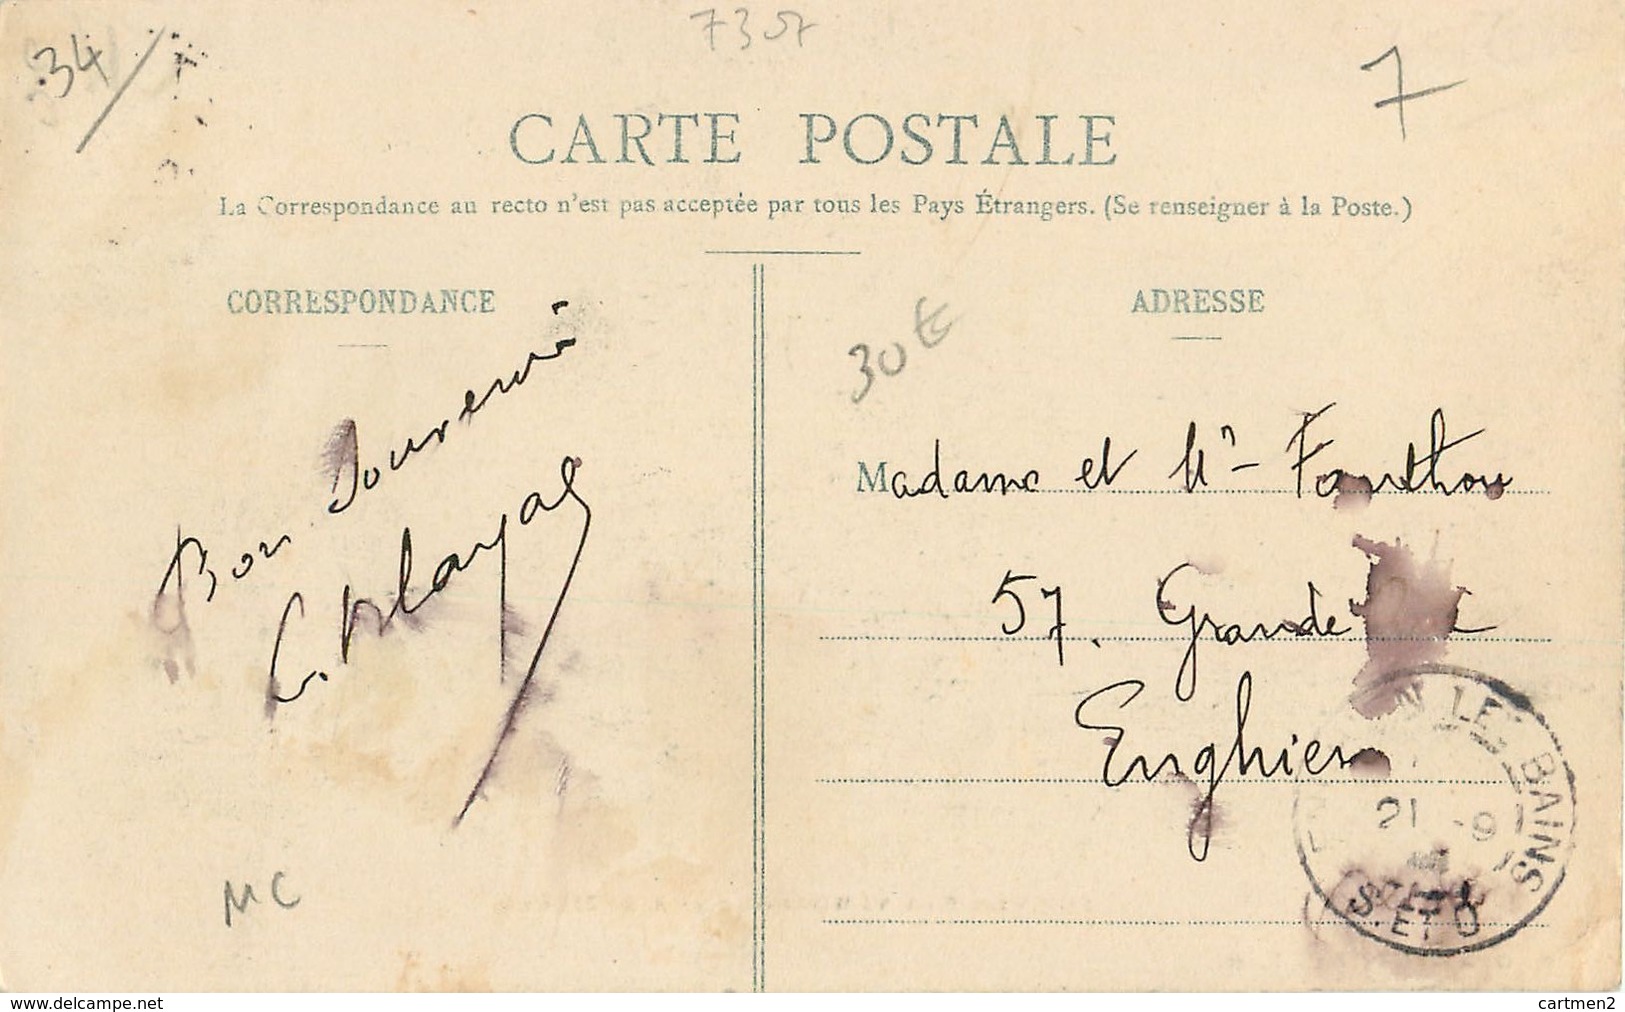 34/
7357
7
CARTE POSTALE
La Correspondance au recto n'est pas acceptée par tous les Pays Étrangers. (Se renseigner à la Poste.)
CORRESPONDANCE
Bon Souvenir
MC
ADRESSE
30€
Madame et Mr Fauthou
57. Grande
Enghien
LES BAINS
21 -9
S. ET O
www.delcampe.net
cartmen2